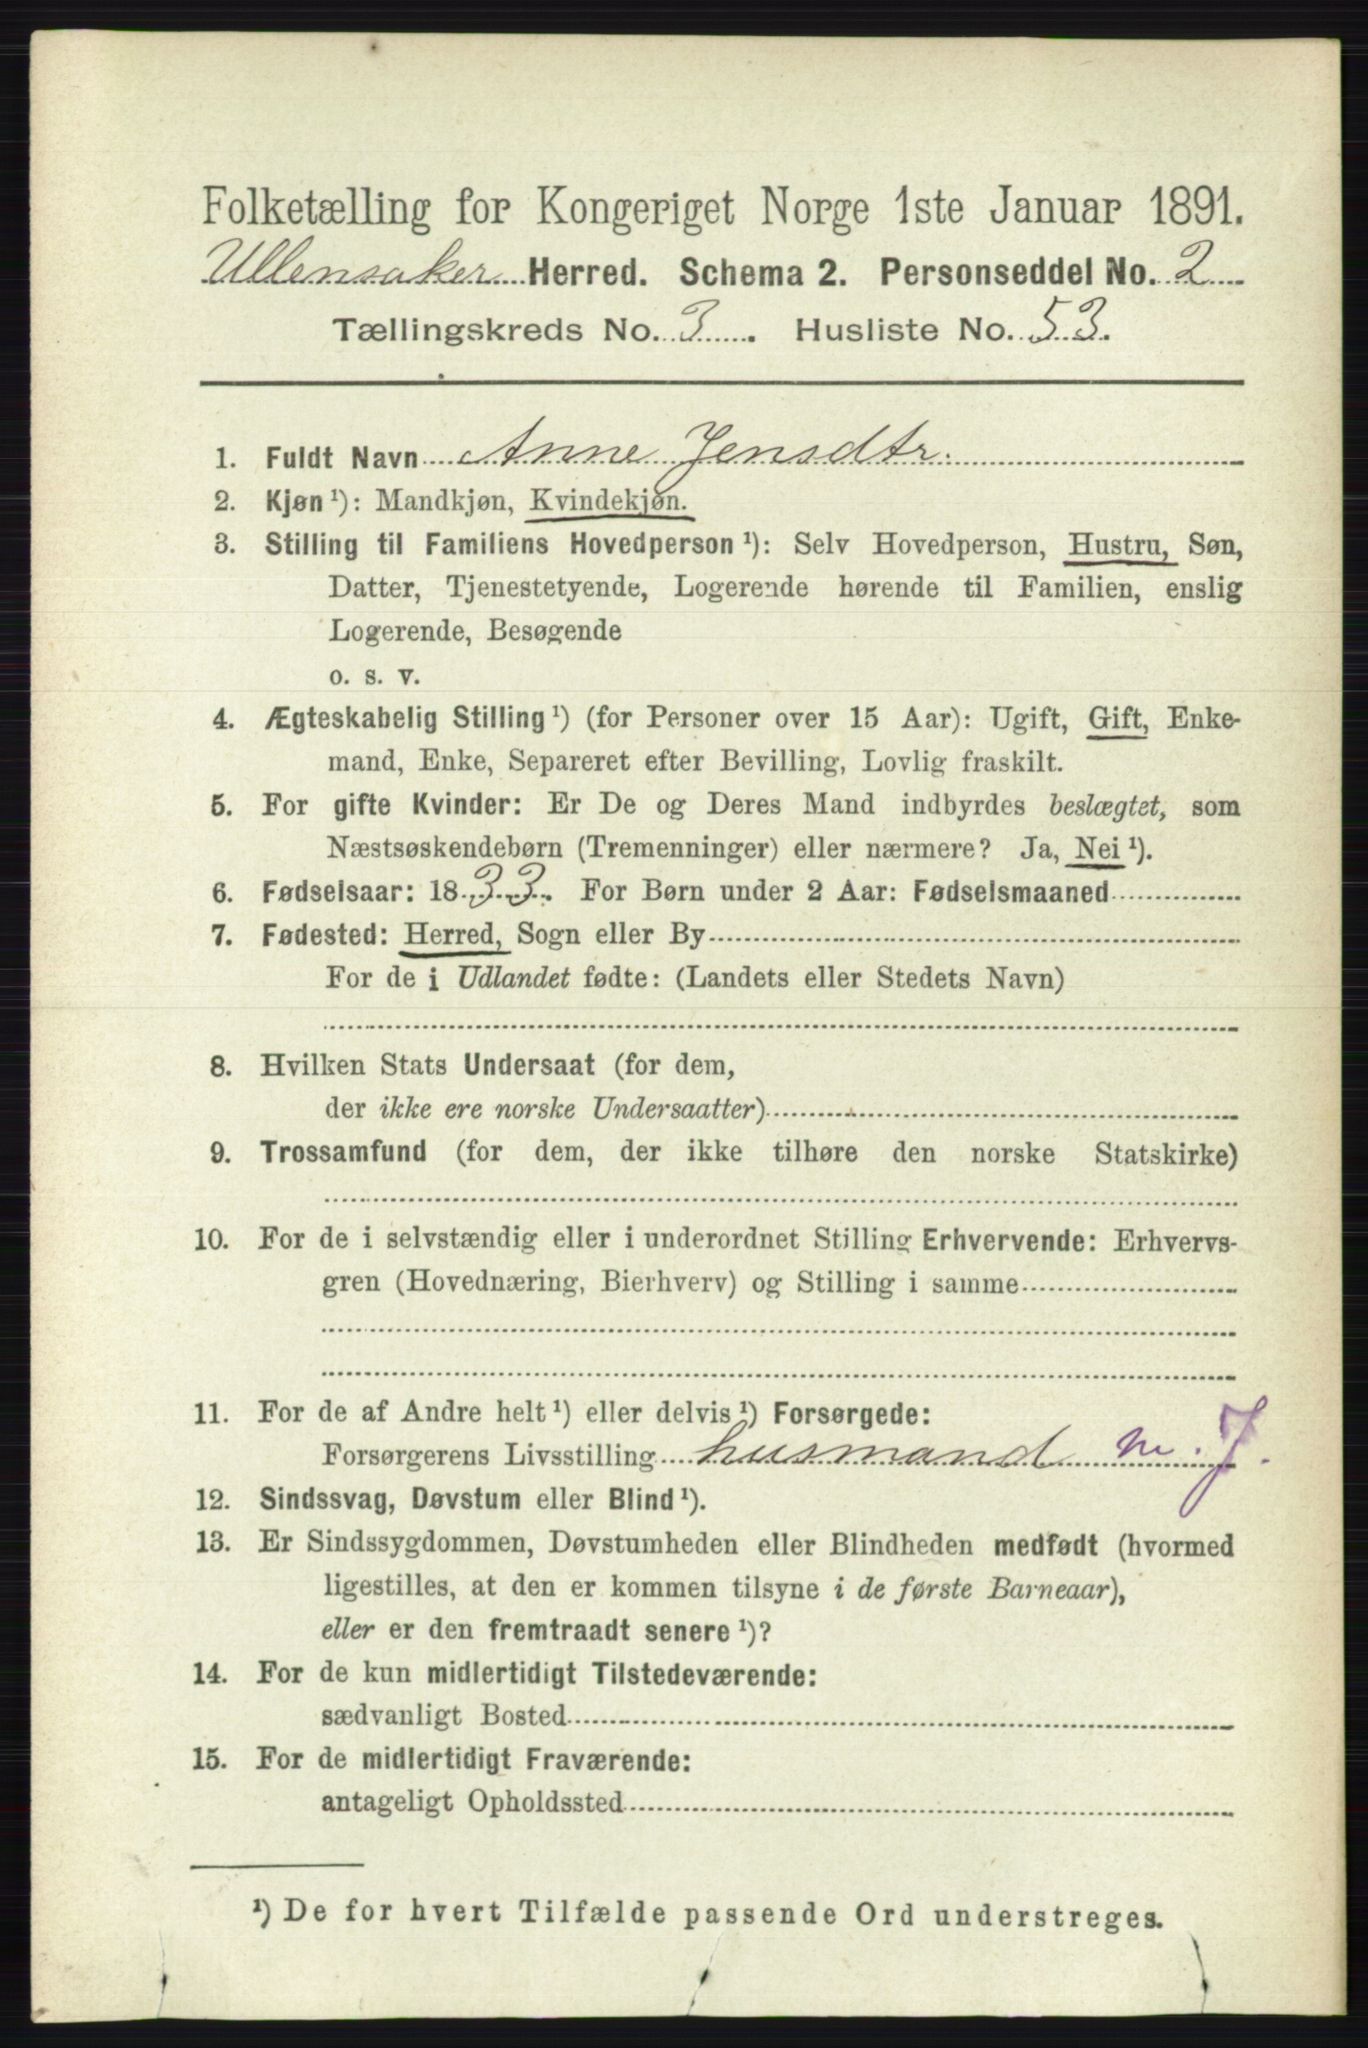 Folketælling for Kongeriget Norge 1ste Januar 1891.
Ullensaker Herred. Schema 2. Personseddel No. 2
Tællingskreds No. 3. Husliste No. 53.
1. Fuldt Navn Anne Jensdtr.
2. Kjøn ¹): Mandkjøn, Kvindekjøn.
3. Stilling til Familiens Hovedperson ¹): Selv Hovedperson, Hustru, Søn,
Datter, Tjenestetyende, Logerende hørende til Familien, enslig
Logerende, Besøgende
o. s. v.
4. Ægteskabelig Stilling ¹) (for Personer over 15 Aar): Ugift, Gift, Enke-
mand, Enke, Separeret efter Bevilling, Lovlig fraskilt.
5. For gifte Kvinder: Er De og Deres Mand indbyrdes beslægtet, som
Næstsøskendebørn (Tremenninger) eller nærmere? Ja, Nei ¹).
6. Fødselsaar: 1833. For Børn under 2 Aar: Fødselsmaaned
7. Fødested: Herred, Sogn eller By
For de i Udlandet fødte: (Landets eller Stedets Navn)
8. Hvilken Stats Undersaat (for dem,
der ikke ere norske Undersaatter)
9. Trossamfund (for dem, der ikke tilhøre den norske Statskirke)
10. For de i selvstændig eller i underordnet Stilling Erhvervende: Erhvervs-
gren (Hovednæring, Bierhverv) og Stilling i samme
11. For de af Andre helt ¹) eller delvis ¹) Forsørgede:
Forsørgerens Livsstilling husmand m. J.
12. Sindssvag, Døvstum eller Blind ¹).
13. Er Sindssygdommen, Døvstumheden eller Blindheden medfødt (hvormed
ligestilles, at den er kommen tilsyne i de første Barneaar),
eller er den fremtraadt senere ¹)?
14. For de kun midlertidigt Tilstedeværende:
sædvanligt Bosted
15. For de midlertidigt Fraværende:
antageligt Opholdssted
¹) De for hvert Tilfælde passende Ord understreges.